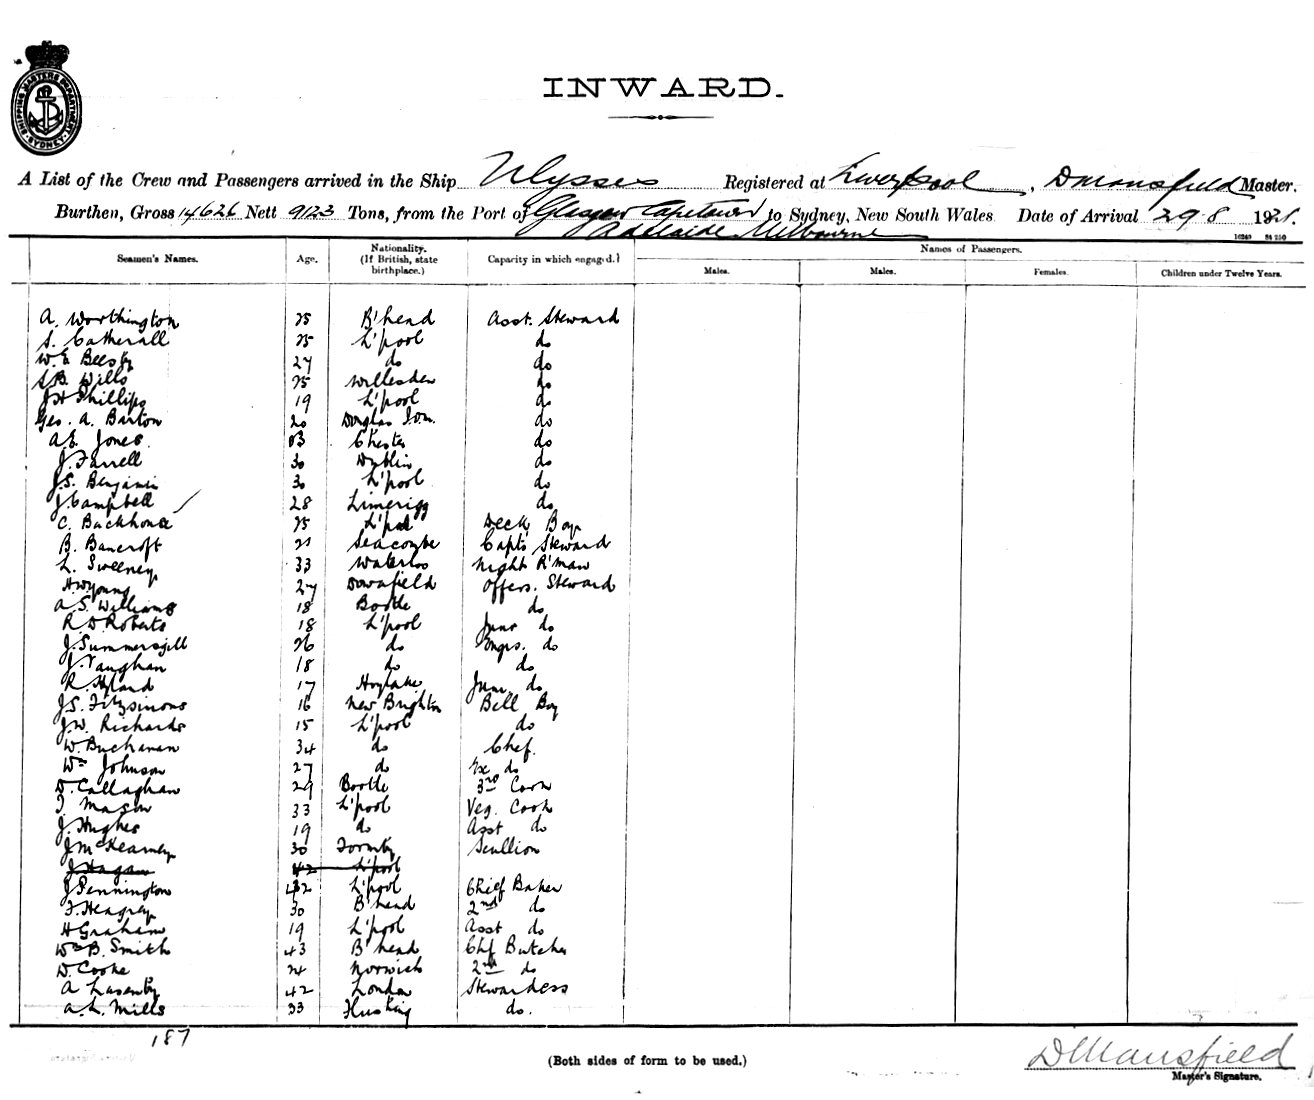 SHIPPING MASTERS DEPARTMENT SYDNEY
INWARD.
A List of the Crew and Passengers arrived in the Ship Ulysses Registered at Liverpool, D Mansfield Master.
Burthen, Gross 14626 Nett 9123 Tons, from the Port of Glasgow Capetown to Sydney, New South Wales Date of Arrival 29.8 1921.
Adelaide Melbourne
Seamen's Names. Age. Nationality. (If British, state birthplace.) Capacity in which engaged. Names of Passengers.
Males. Males. Females. Children under Twelve Years.
A. Worthington 25 B'head Asst. Steward
S. Catherall 25 L'pool do
W.E Beesby 27 do do
S.B. Wills 25 Willesden do
J H Phillips 19 L'pool do
Geo. A. Barton 20 Douglas I.o.m. do
A.E. Jones 23 Chester do
J. Farrell 30 Dublin do
J.S. Benjamin 30 L'pool do
J. Campbell 28 Limerigg do
C. Backhouse 25 L'pool Deck Boy
B. Bancroft 21 Seacombe Capts Steward
L. Sweeney 33 Waterloo Night R'man
H W Young 27 Dovafield Offers. Steward
A.S. Williams 18 Bootle do
R. D. Roberts 18 L'pool Junr do
J. Summersgill 26 do Engrs. do
J. Vaughan 18 do do
R. Hyland 17 Hoylake Junr. do
J.S. Fitzsimons 16 New Brighton Bell Boy
J.W. Richards 15 L'pool do
W. Buchanan 34 do Chef.
Wm Johnson 27 do do
D. Callaghan 29 Bootle 3rd Cook
J. Mason 33 L'pool Veg. Cook
J. Hughes 19 do Asst do
J. McKearney 30 Formby Scullion
J Hagan 42 L'pool
J Pennington 42 L'pool Chief Baker
F. Heagrey 30 B'head 2nd do
H Graham 19 L'pool Asst do
Wm B. Smith 43 B'head Chf Butcher
D. Cooke 24 Norwich 2nd do
A Lasenby 42 London Stewardess
A. L. Mills 33 do.
187
(Both sides of form to be used.)
D Mansfield
Master's Signature.